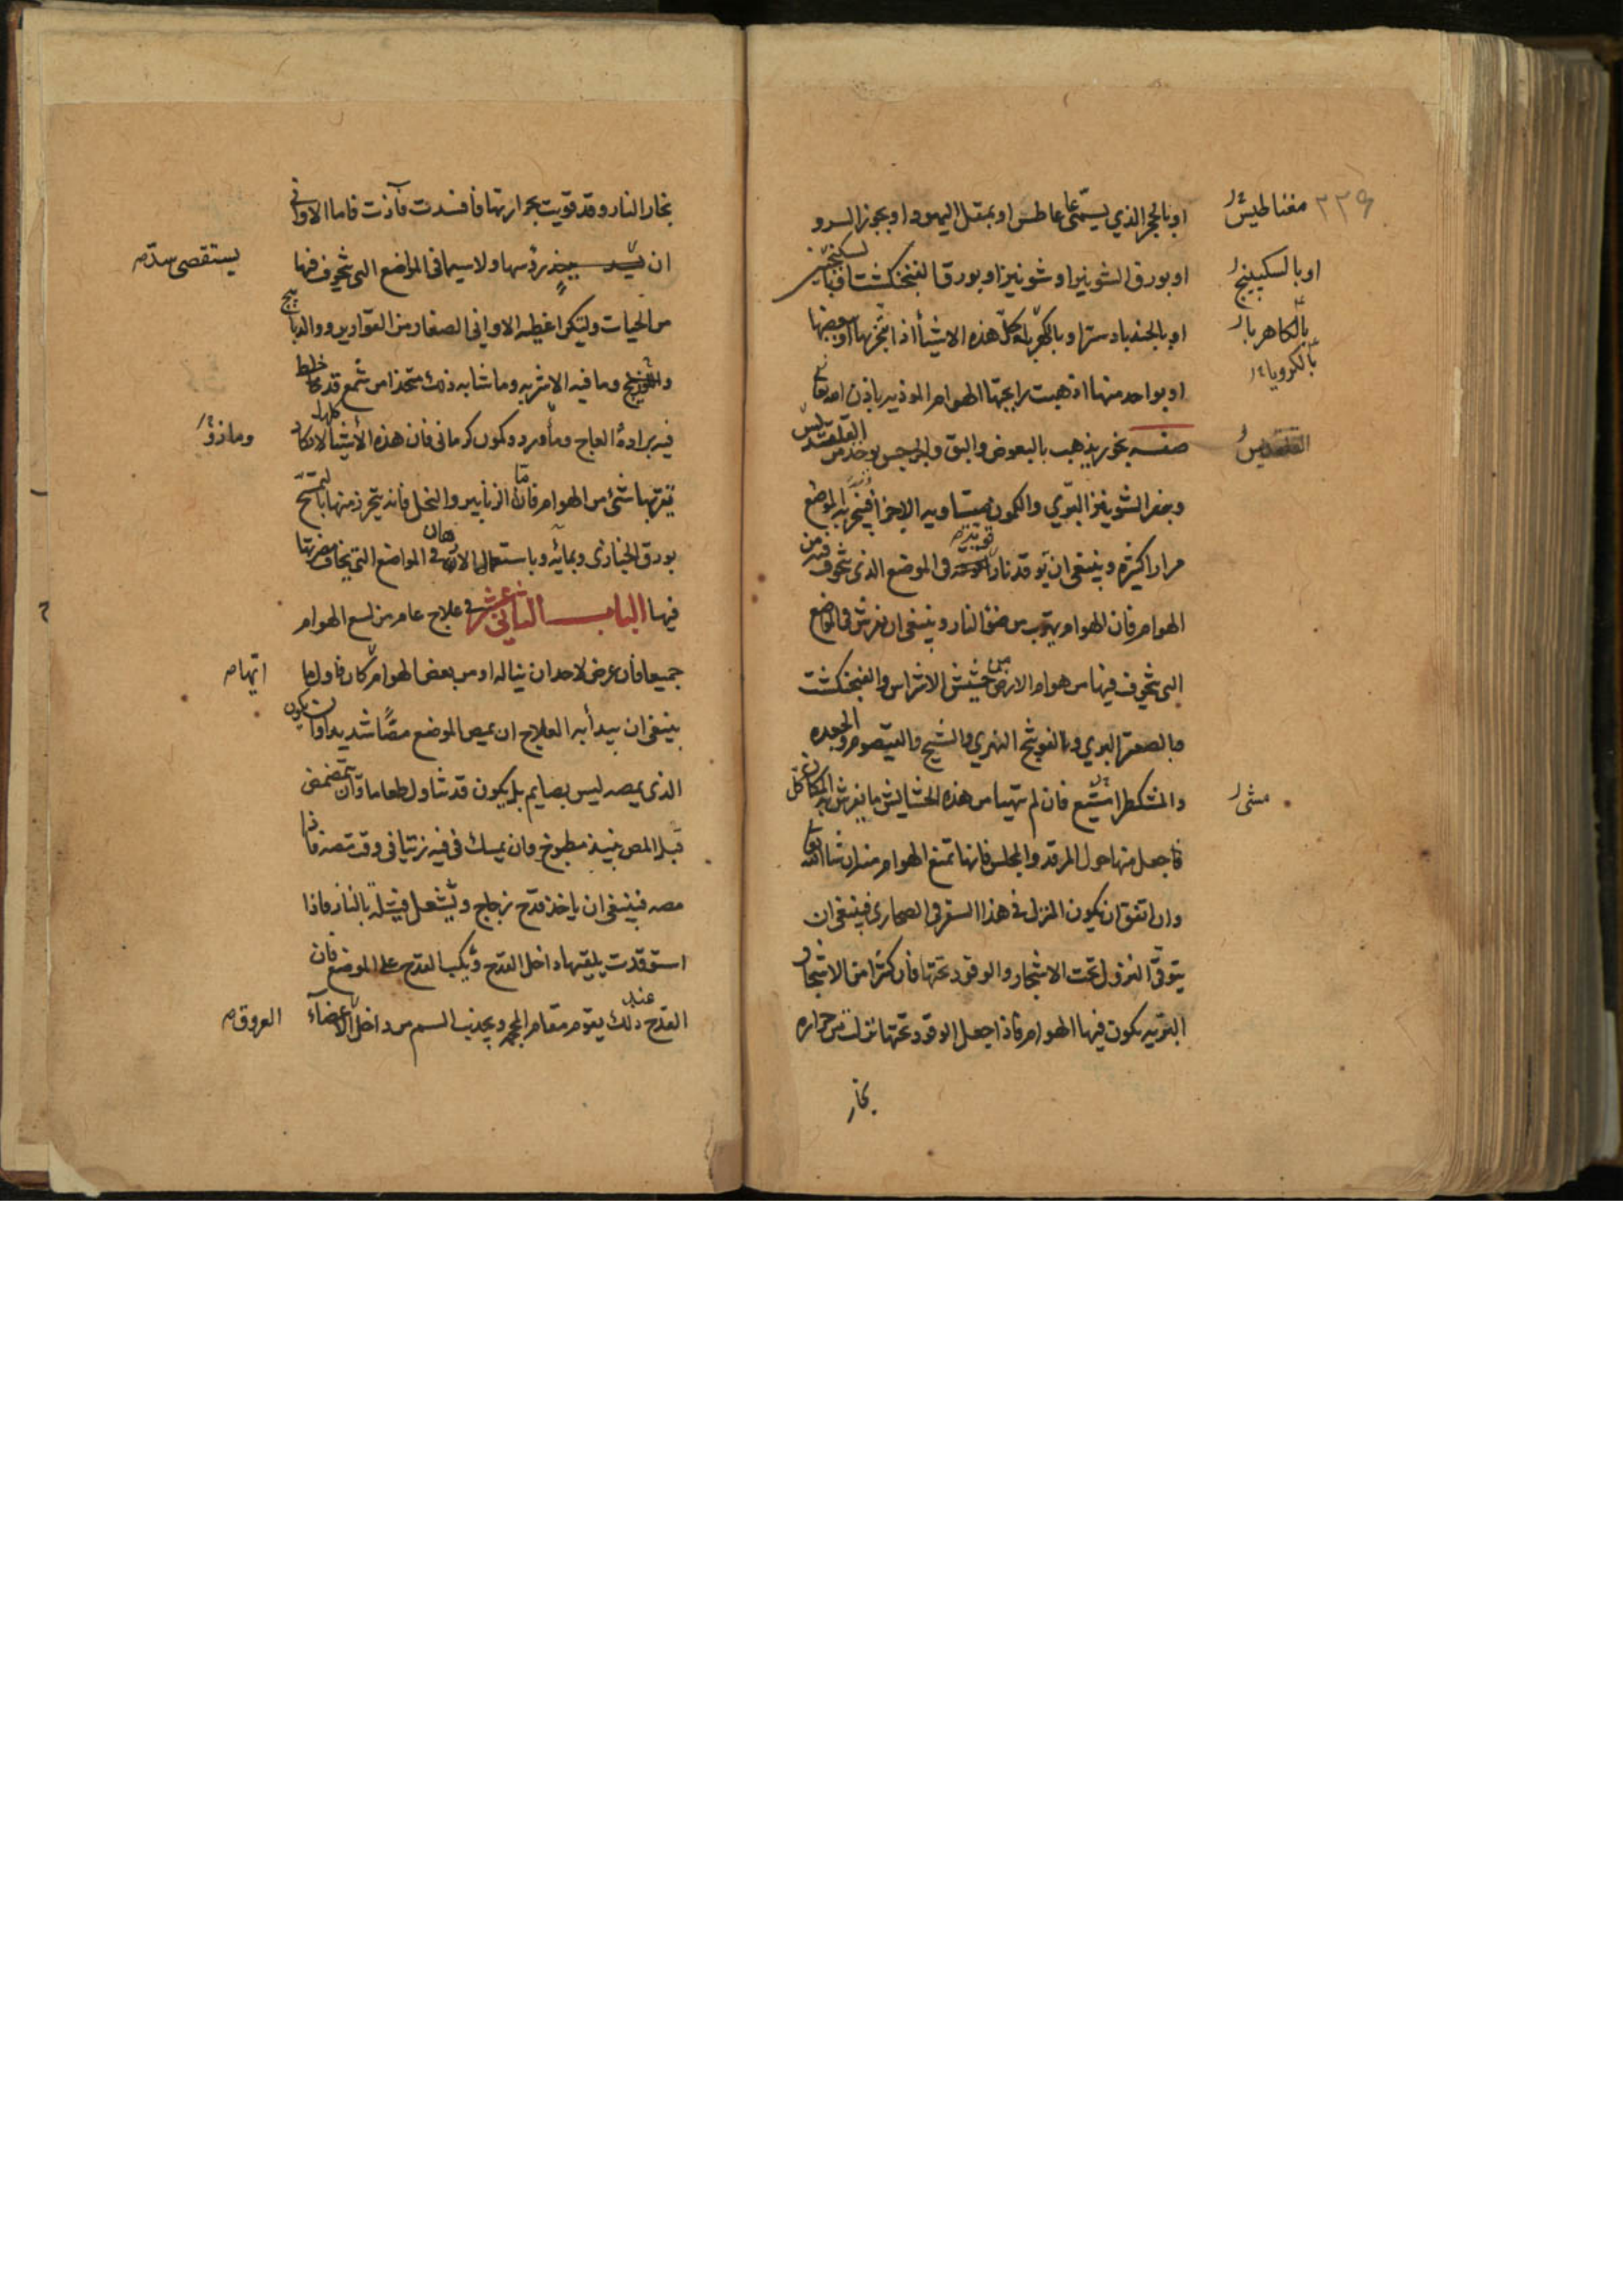 ٢٢٩
مغناطيس
او بالحجر الذي يسمى عاعاطس او بمقل اليهود او بجوز السرو
او بالسكبينج
او بورق الشونيز او شونيز او بورق الفنجنكشت او بالسكبينج
بالكاهربا
بالكرويا
او بالجندبادستر او بالكهربا كل هذه الاشيا اذا بخر بها او ببعضها
او بواحد منها اذهبت برايحتها الهوام الموذيه باذن الله تعالى
القلقديس
صفه بخور يذهب بالبعوض والبق والجرجس يوخذ من القلقديس
وبزر الشونيز البري والكمون متساويه الاجزا فيبخر به الموضع
مرارا كثيره وينبغي ان توقد نارا قويه في الموضع الذي يتخوف فيه من
الهوام فان الهوام يهرب من ضو النار وينبغي ان يفرش في المواضع
التي يتخوف فيها من هوام الارض من حشيش الاشراس والفنجنكشت
وبالصعتر البري وبالفوتنج النهري والشيح والقيصوم والجعده
مشي
والمشكطرامشيع فان لم يتهيا من هذه الحشايش ما يفرش به المكان كل
فاجعل منها حول المرقد والمجلس فانها تمنع الهوام منه ان شا الله تعالى
وان اتفق ان يكون المنزل في هذا السفر في الصحاري فينبغي ان
يتوقى النزول تحت الاشجار والوقود تحتها فان كثرا من الاشجار
البريه يكون فيها الهوام فاذا جعل الوقود تحتها نزلت من حراره
بخار
بخار النار وقد قويت بحرارتها فافسدت وآذت فاما الاواني
يستقصى سد
ان رؤسها ولا سيما في المواضع التي يتخوف فيها
من الحيات ولتكن اغطيه الاواني الصغار من القوارير والدبابيج
وما فيه الاشربه وما شابه ذلك متخذا من شمع قد خلط
فيه برادة العاج وكمون كرماني فان هذه الأشيا كلها لا تكاد
يقربها شيء من الهوام فاما الزنابير والنحل فانه يتحرز منها بالتمسح
بورق الخبازى وبمائه وباستعمال الادهان في المواضع التي يخاف مضرتها
فيها الباب الثاني عشر في علاج عام من لسع الهوام
ايها
جميعا فان عرض لاحد ان يناله اذى من بعض الهوام كان فاول ما
ينبغي ان يبدأ به العلاج ان يمص الموضع مصا شديدا وان يكون
الذي يمصه ليس بصايم بل يكون قد تناول طعاما وان يتمضمض
قبل المص بنبيذ مطبوخ وان يمسك في فيه زيتا في وقت مصه
مصه فينبغي ان ياخذ قدح زجاج ويشعل فتيلة بالنار فاذا
استوقدت يلقيها داخل القدح ويكب القدح على الموضع فان
العروق
القدح عند ذلك يقوم مقام المحجمه ويجذب السم من داخل الاعضآء